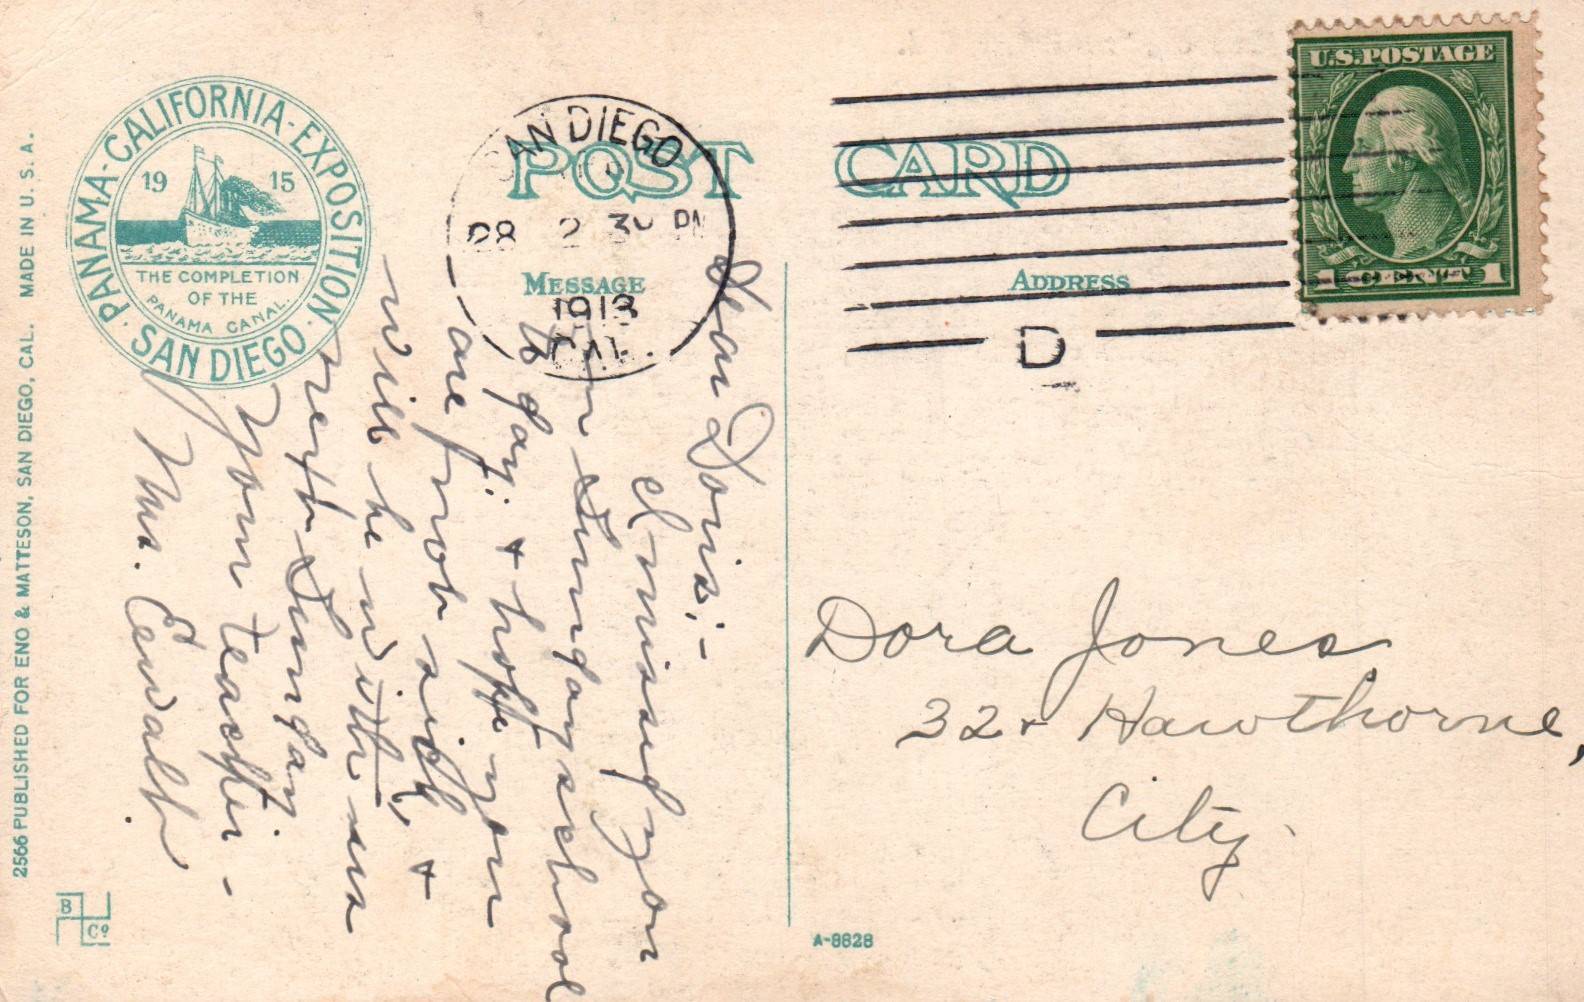 PANAMA-CALIFORNIA-EXPOSITION
19 15
THE COMPLETION
OF THE
PANAMA CANAL.
SAN DIEGO
POST CARD
SAN DIEGO
28 2 30 PM
1913
CAL.
D
U.S.POSTAGE
1
MESSAGE
ADDRESS
Dear Doris:-
I missed you
in Sunday school
to day. + hope you
are not sick, +
will be with us
next Sunday.
Your teacher -
Mrs. Ewalt.
Dora Jones
Hawthorne,
City.
2566 PUBLISHED FOR ENO & MATTESON, SAN DIEGO, CAL. MADE IN U. S. A.
B
Co
A-8828